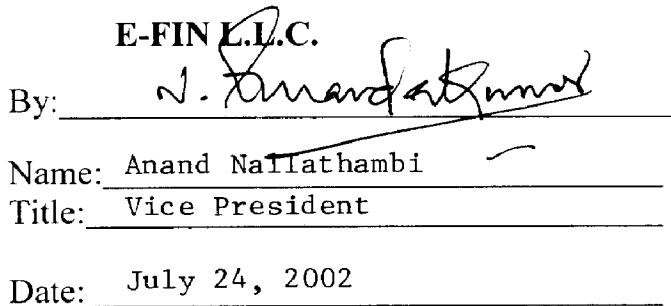 E-FIN L.L.C.
By: N. Anandakumar
Name: Anand Nallathambi
Title: Vice President
Date: July 24, 2002